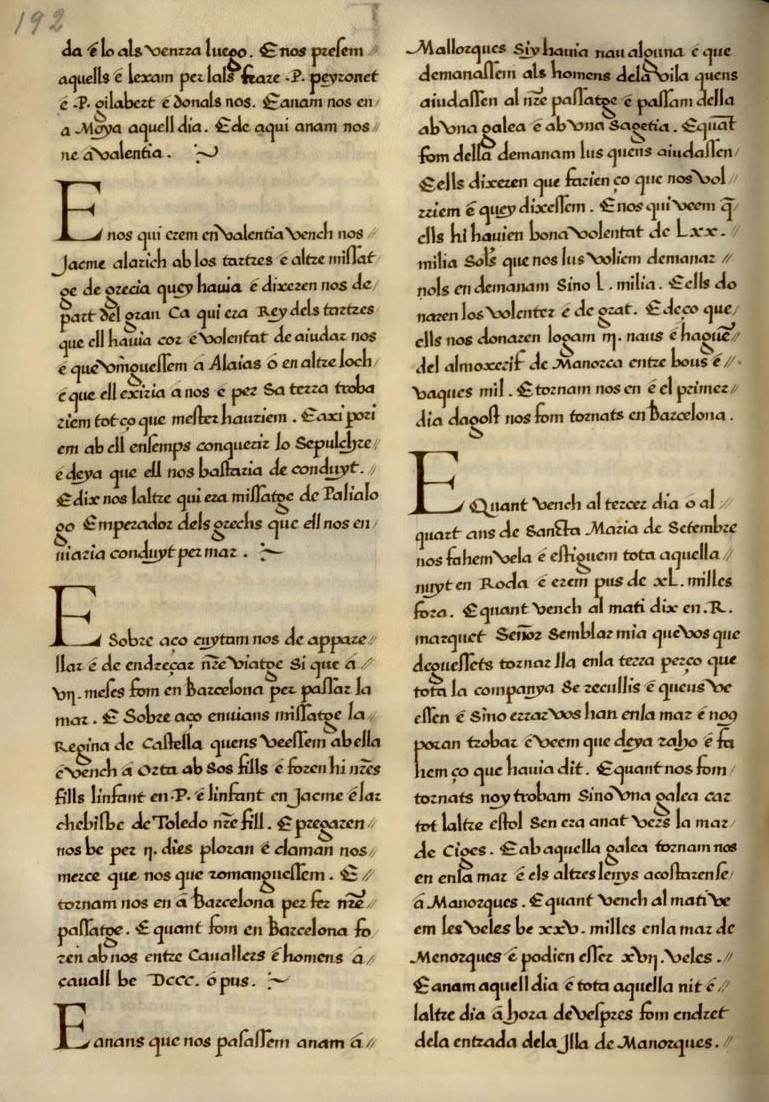 192
da é lo als venrra luego. E nos presem //
aquells é lexam per lals frare .P. peyronet
é .P. gilabert é donals nos. E anam nos en /
a Moya aquell dia. E de aqui anam nos //
ne á valentia.
E nos qui erem en valentia vench nos //
Jacme alarich ab los tartres é altre missat
ge de grecia quey hauia é dixeren nos de /
part del gran Ca qui era Rey dels tartres
que ell hauia cor é volentat de aiudar nos
é que vinguessem á Alaias ó en altre loch /
é que ell exiria a nos é per sa terra troba
riem tot ço que mester hauriem. E axi pori
em ab ell ensemps conquerir lo Sepulchre //
é deya que ell nos bastaria de conduyt. //
E dix nos laltre qui era missatge de Palialo
go Emperador dels grechs que ell nos en /
uiaria conduyt per mar.
E Sobre aço cuytam nos de appare //
llar é de endreçar nr̃e viatge si que á //
vıȷ. meses fom en barcelona per passar la
mar. E Sobre aço enuians missatge la
Regina de Castella quens veessem ab ella
é vench á Orta ab sos fills é foren hi nr̃es
fills linfant en .P. é linfant en Jacme é lar
chebisbe de Toledo nr̃e fill. E pregaren //
nos be per ıȷ. dies ploran é claman nos //
merce que nos que romanguessem. E //
tornam nos en á barcelona per fer nr̃e
passatge. E quant fom en barcelona fo /
ren ab nos entre Cauallers é homens á //
cauall be Dccc. ó pus.
E anans que nos pasassem anam á //
Mallorques Si y hauia nau alguna é que
demanassem als homens dela vila quens
aiudassen al nr̃e passatge é passam della
ab vna galea é ab vna Sagetia. E quãt
fom della demanam lus quens aiudassen /
E ells dixeren que farien ço que nos vol //
rriem é quey dixessem. E nos qui veem q̃
ells hi hauien bona volentat de Lxx.
milia Sols que nos lus voliem demanar //
nols en demanam Sino L. milia. E ells do
naren los volenter é de grat. E de ço que /
ells nos donaren logam ııȷ. naus é haguẽ
del almoxerif de Manorca entre bous é //
vaques mil. E tornam nos en é el primer //
dia dagost nos fom tornats en barcelona.
E Quant vench al tercer dia ó al //
quart ans de Sancta Maria de Setembre
nos fahem vela é estiguem tota aquella //
nuyt en Roda é erem pus de xL. milles
fora. E quant vench al mati dix en .R.
marquet Señor Semblar mia que vos que
deguessets tornar lla en la terra perço que
tota la companya Se recullis é queus ve
essen é Sino errar vos han en la mar é nog
poran trobar é veem que deya raho é fa
hem ço que hauia dit. E quant nos fom /
tornats noy trobam Sino vna galea car
tot laltre estol Sen era anat vers la mar /
de Ciges. E ab aquella galea tornam nos
en en la mar é els altres lenys acostaren se /
á Manorques. E quant vench al mati ve
em les veles be xxv. milles en la mar de
Menorques é podien esser xvıȷ. veles. //
E anam aquell dia é tota aquella nit é //
laltre dia á hora de vespres fom endret
dela entrada dela Jlla de Manorques. //